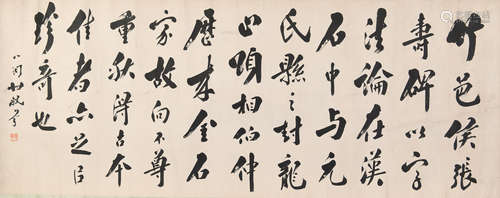 竹邑侯張
壽碑以字
法論在漢
石中与元
氏縣之封龍
山頌相伯仲
歷來金石
家故向不尊
重狀得古本
佳者亦足
珍奇也